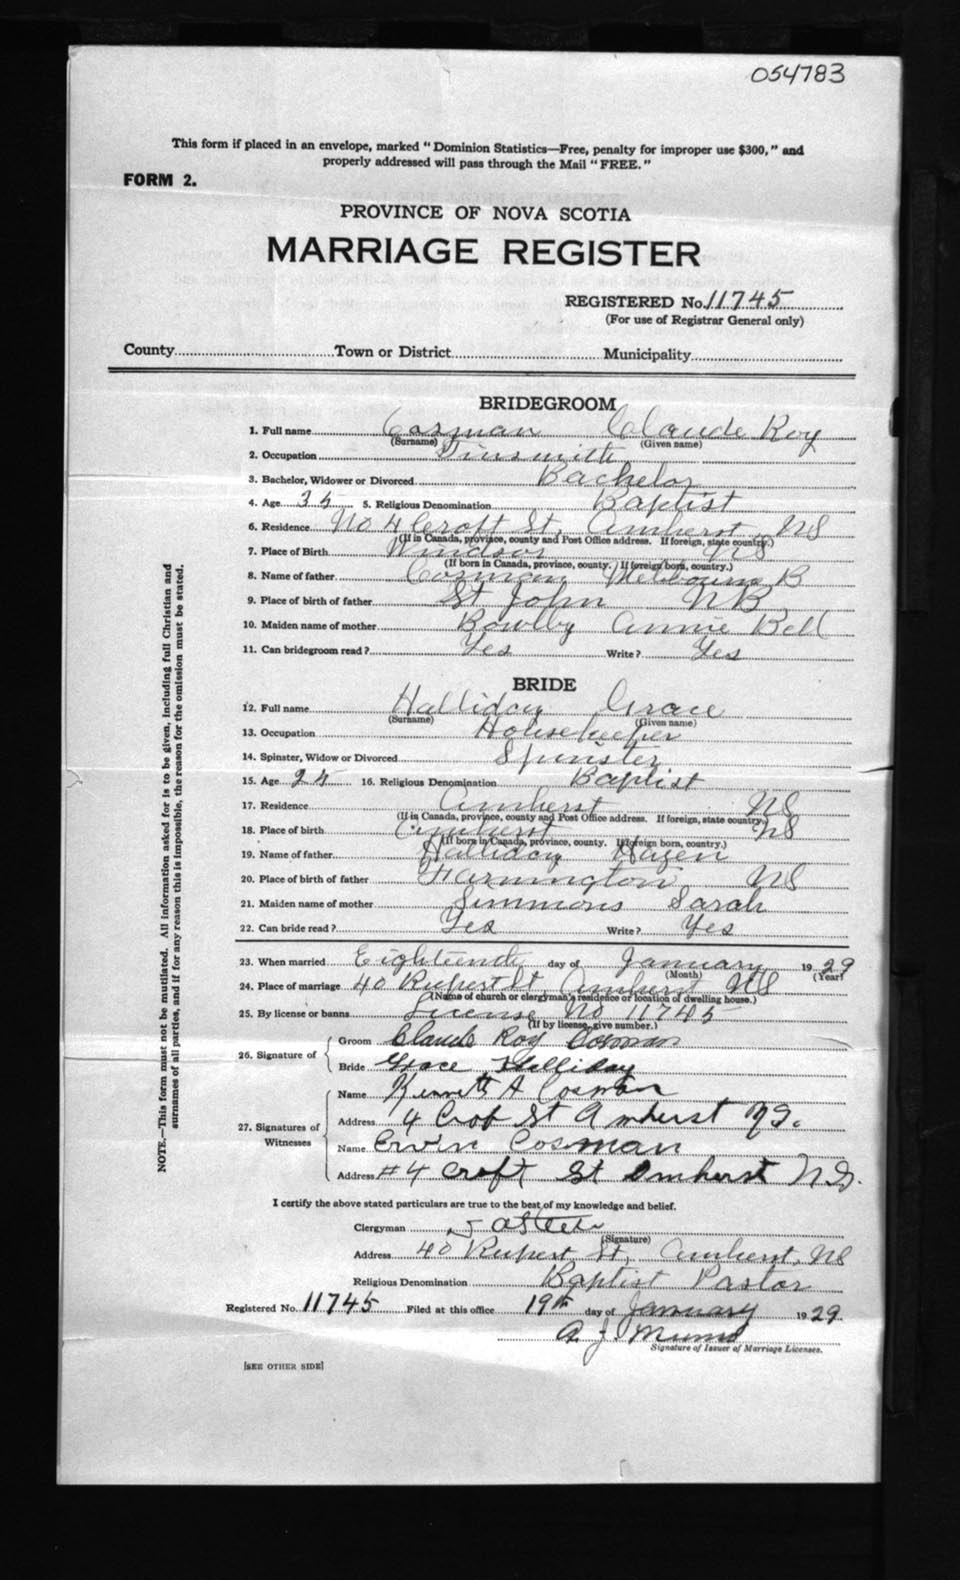 054783
This form if placed in an envelope, marked "Dominion Statistics—Free, penalty for improper use $300," and
properly addressed will pass through the Mail "FREE."
FORM 2.
PROVINCE OF NOVA SCOTIA
MARRIAGE REGISTER
REGISTERED No. 11745
(For use of Registrar General only)
County Town or District Municipality
BRIDEGROOM
1. Full name Cosman Claude Roy
(Surname) (Given name)
2. Occupation Tinsmith
3. Bachelor, Widower or Divorced Bachelor
4. Age 35 5. Religious Denomination Baptist
6. Residence No 4 Croft St, Amherst NS
(If in Canada, province, county and Post Office address. If foreign, state country.)
7. Place of Birth Windsor NS
(If born in Canada, province, county. If foreign born, country.)
8. Name of father Cosman Melbourne B
9. Place of birth of father St John NB
10. Maiden name of mother Bowlby Annie Bell
11. Can bridegroom read? Yes Write? Yes
BRIDE
12. Full name Halliday Grace
(Surname) (Given name)
13. Occupation Housekeeper
14. Spinster, Widow or Divorced Spinster
15. Age 25 16. Religious Denomination Baptist
17. Residence Amherst NS
(If in Canada, province, county and Post Office address. If foreign, state country.)
18. Place of birth Amherst NS
(If born in Canada, province, county. If foreign born, country.)
19. Name of father Halliday Hazen
20. Place of birth of father Farmington NS
21. Maiden name of mother Simmons Sarah
22. Can bride read? Yes Write? Yes
23. When married Eighteenth day of January 1929
(Month) (Year)
24. Place of marriage 40 Rupert St, Amherst NS
(Name of church or clergyman's residence or location of dwelling house.)
25. By license or banns License No 11745
(If by license, give number.)
26. Signature of
Groom Claude Roy Cosman
Bride Grace Halliday
27. Signatures of Witnesses
Name Kenneth A Cosman
Address 4 Crof St Amherst NS.
Name Ervin Cosman
Address #4 Croft St Amherst N.S.
I certify the above stated particulars are true to the best of my knowledge and belief.
Clergyman
(Signature)
Address 40 Rupert St, Amherst, NS
Religious Denomination Baptist Pastor
Registered No. 11745 Filed at this office 19th day of January 1929
A. J.
Signature of Issuer of Marriage Licenses.
[SEE OTHER SIDE]
NOTE.—This form must not be mutilated. All information asked for is to be given, including full Christian and
surnames of all parties, and if for any reason this is impossible, the reason for the omission must be stated.